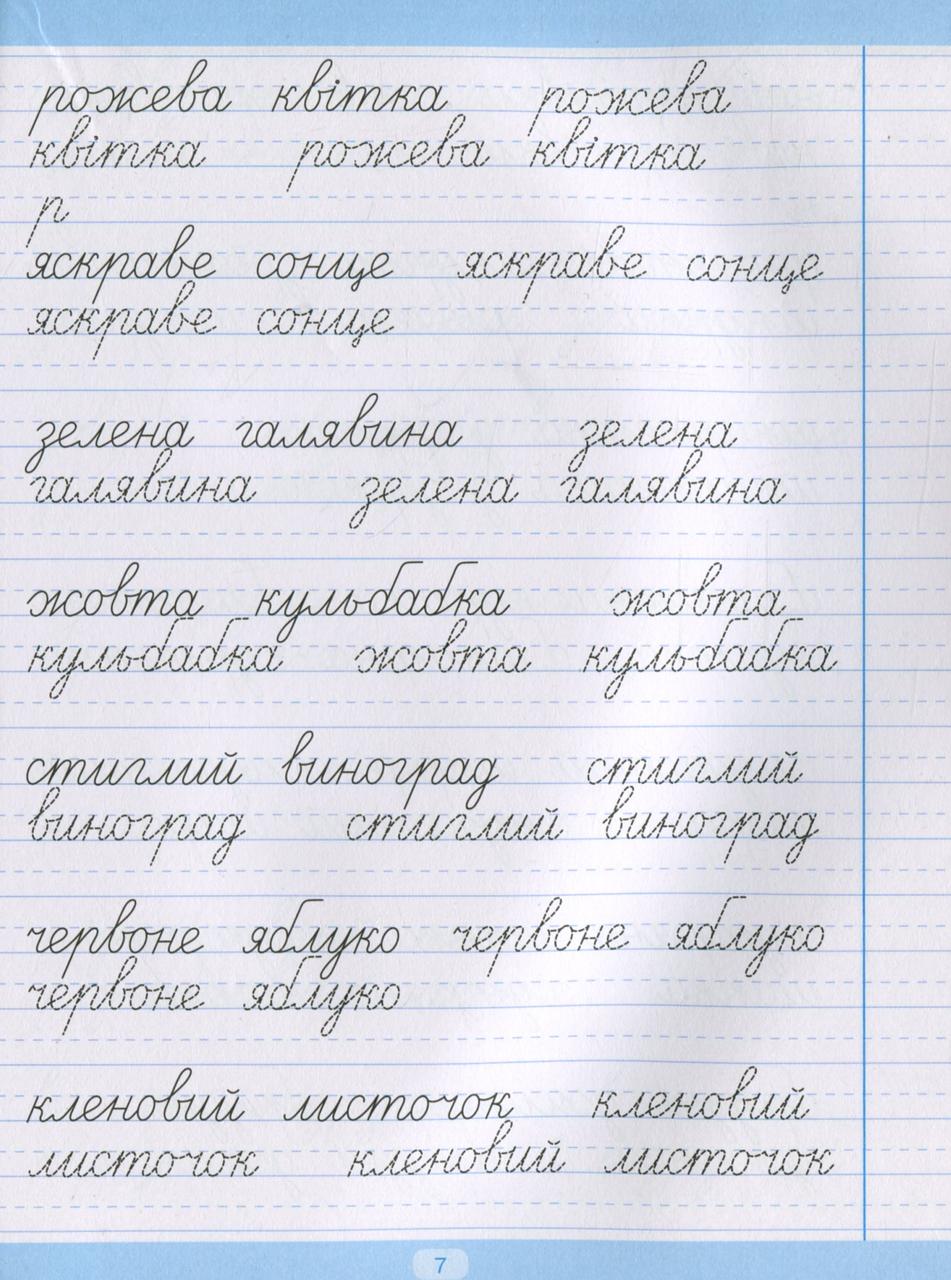 рожева квітка рожева
квітка рожева квітка
р
яскраве сонце яскраве сонце
яскраве сонце
зелена галявина зелена
галявина зелена галявина
жовта кульбабка жовта
кульбабка жовта кульбабка
стиглий виноград стиглий
виноград стиглий виноград
червоне яблуко червоне яблуко
червоне яблуко
кленовий листочок кленовий
листочок кленовий листочок
7